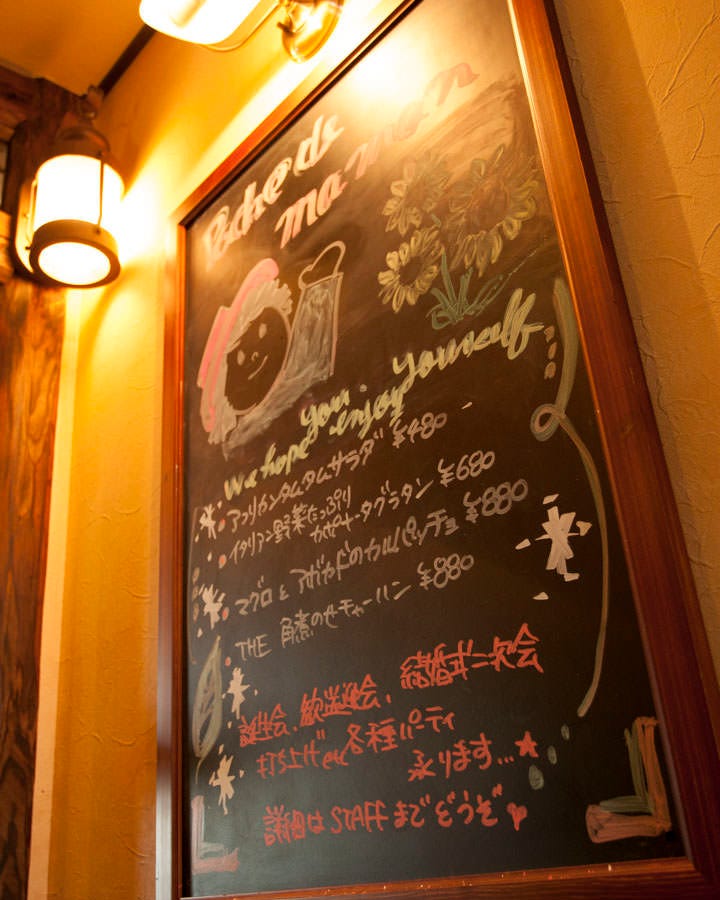 Poche de
maman
We hope you enjoy yourself
アフリカンタムタムサラダ ¥480
イタリアン野菜たっぷり
カポナータグラタン ¥680
マグロとアボカドのカルパッチョ ¥880
THE 角煮のせチャーハン ¥880
誕生会、歓送迎会、結婚式二次会
打ち上げetc各種パーティ
承ります…★
詳細はSTAFFまでどうぞ♥